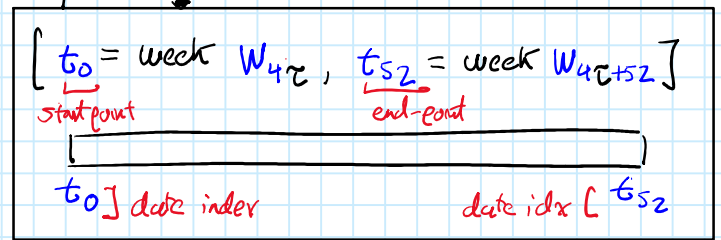 [ t₀ = week W₄τ , t₅₂ = week W₄τ+₅₂ ]
startpoint end-point
t₀ ] date index date idx [ t₅₂